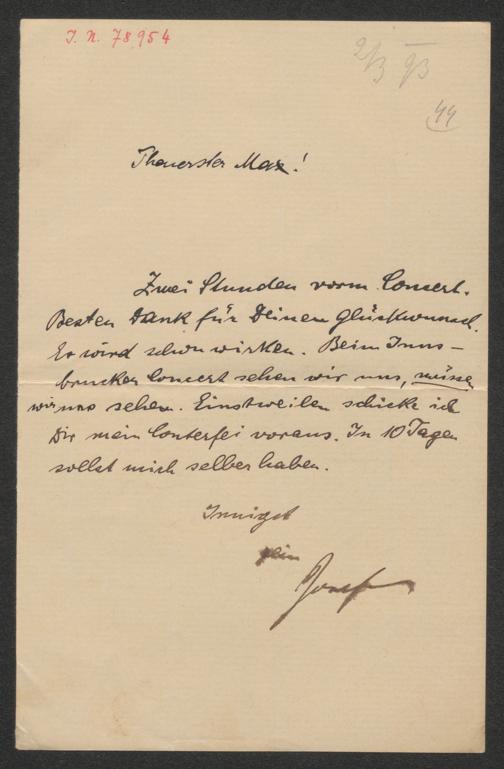 I. N. 78954
2/3 93
44
Theuerster Max!
Zwei Stunden vorm Concert.
Besten Dank für Deinen Glückwunsch.
Er wird schon wirken. Beim Inns-
brucker Concert sehen wir uns, müssen
wir uns sehen. Einstweilen schicke ich
Dir mein Conterfei voraus. In 10 Tagen
sollst mich selber haben.
Innigst
Dein
Josef